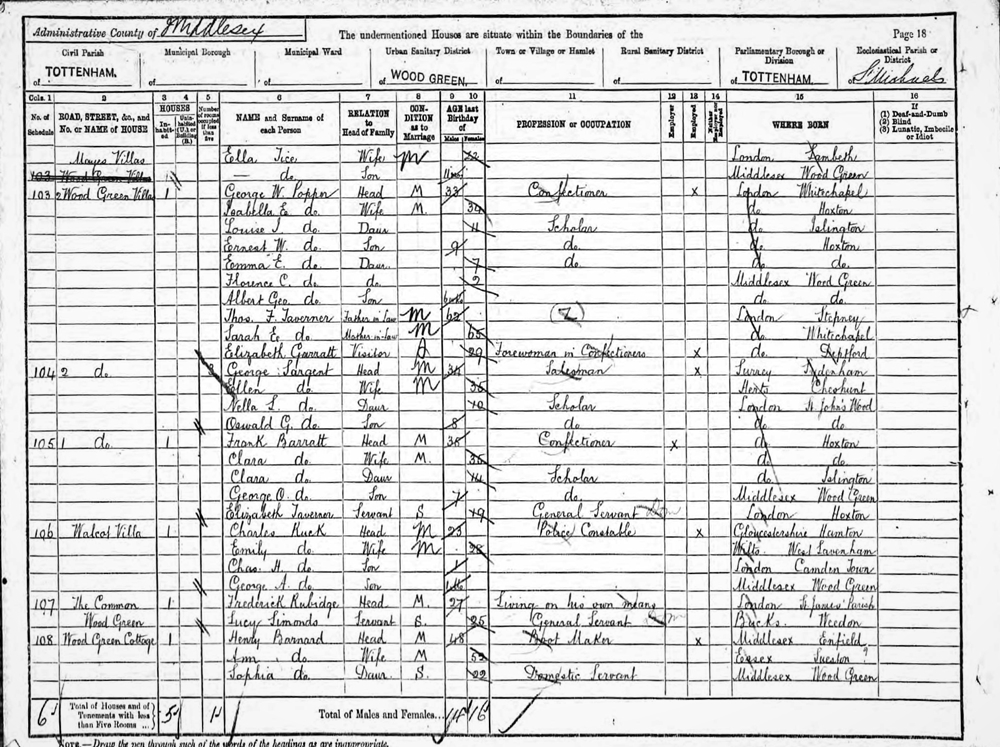 Administrative County of Middlesex The undermentioned Houses are situate within the Boundaries of the Page 18
Civil Parish Municipal Borough Municipal Ward Urban Sanitary District Town or Village or Hamlet Rural Sanitary District Parliamentary Borough or Division Ecclesiastical Parish or District
of TOTTENHAM. of of of WOOD GREEN. of of of TOTTENHAM. of St Michaels
Cols. 1 2 3 4 5 6 7 8 9 10 11 12 13 14 15 16
No. of Schedule ROAD, STREET, &c., and No. or NAME of HOUSE HOUSES Inhabited Uninhabited (U.) or Building (B.) Number of rooms occupied if less than five NAME and Surname of each Person RELATION to Head of Family CONDITION as to Marriage AGE last Birthday of Males Females PROFESSION or OCCUPATION Employer Employed Neither Employer nor Employed WHERE BORN If (1) Deaf-and-Dumb (2) Blind (3) Lunatic, Imbecile or Idiot
Mayes Villas Ella Tice Wife M London Lambeth
103 Wood Green Villa — do. Son Middlesex Wood Green
103 2 Wood Green Villa 1 George W. Popper Head M 33 Confectioner x London Whitechapel
Isabella E. do. Wife M. 34 do. Hoxton
Louise I. do. Daur 11 Scholar do. Islington
Ernest W. do. Son 9 do. do. Hoxton
Emma E. do. Daur. 7 do. do. do.
Florence C. do. do. 2 Middlesex Wood Green
Albert Geo. do. Son do. do.
Thos. F. Taverner Father in law M 62 London Stepney
Sarah E. do. Mother in law M 65 do. Whitechapel
Elizabeth Garratt Visitor 29 Forewoman in Confectioners x do. Deptford
104 2 do. 3 George Sargent Head M 35 Salesman x Surrey Sydenham
Ellen do. Wife M 36 Herts Cheshunt
Nella L. do. Daur 10 Scholar London St. John's Wood
Oswald G. do. Son 8 do. do. do.
105 1 do. 1 Frank Barratt Head M 38 Confectioner x do. Hoxton
Clara do. Wife M. 35 do. do.
Clara do. Daur 14 Scholar do. Islington
George O. do. Son 7 do. Middlesex Wood Green
Elizabeth Taverner Servant S. 19 General Servant Dom London Hoxton
106 Walcot Villa 1 Charles Ruck Head M 23 Police Constable x Gloucestershire Hamton
Emily do. Wife M 28 Wilts West Lavenham
Chas. H. do. Son 1 London Camden Town
George A. do. Son Middlesex Wood Green
107 The Common 1 Frederick Rubidge Head M. 27 Living on his own means London St James' Parish
Wood Green Lucy Simonds Servant S. 25 General Servant Bucks. Weedon
108 Wood Green Cottage 1 Henry Barnard Head M 48 Boot Maker x Middlesex Enfield
Ann do. Wife M 52 Essex
Sophia do. Daur. S. 22 Domestic Servant Middlesex Wood Green
6 Total of Houses and of Tenements with less than Five Rooms ... 5 1 Total of Males and Females... 14 16
NOTE.—Draw the pen through such of the words of the headings as are inappropriate.